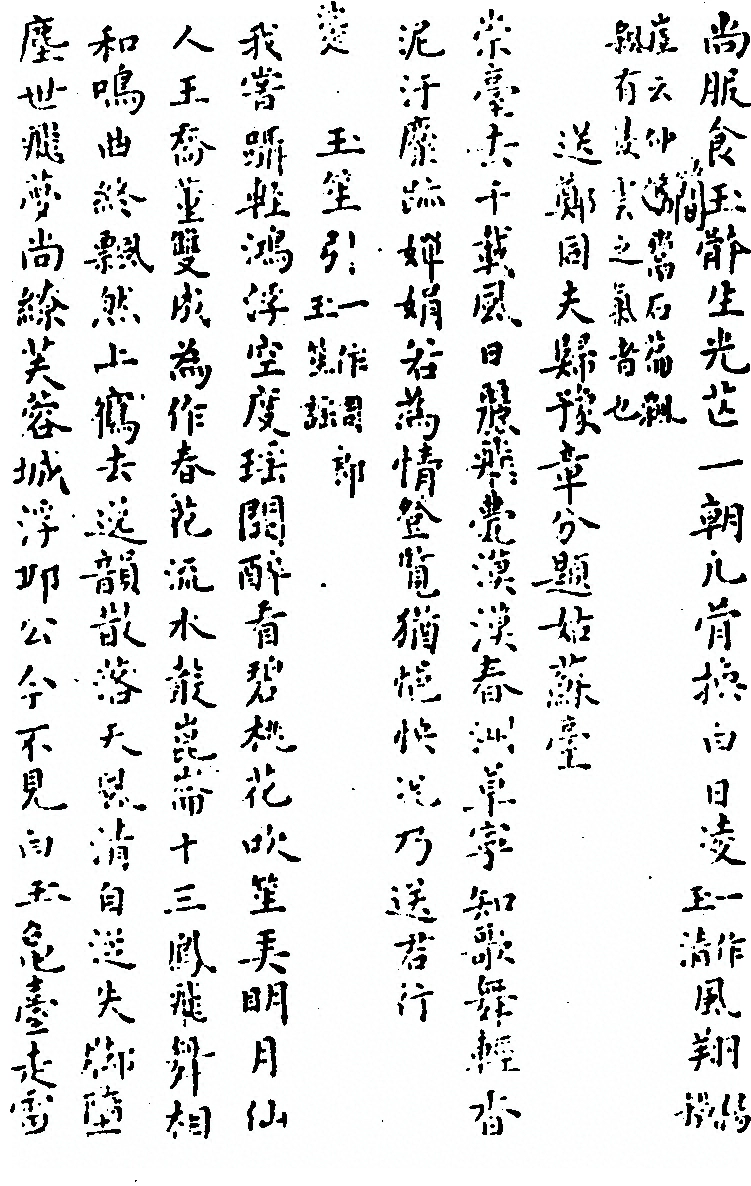 尚服食玉簡齡生光芒一朝凡骨換白日凌一作玉清風翔
飄有凌雲之氣者也
送鄭同夫歸豫章分題姑蘇臺
崇臺去千載風日麗飛甍漠漠春洲草寧知歌舞輕沓
泥汙麋跡嬋娟若為情登覽猶悒怏況乃送君行
玉笙引一作周郎玉笙謠
我嘗躡輕鴻浮空度瑤闕醉看碧桃花吹笙弄明月仙
人王喬董雙成為作春花流水聲崑崙十三鳳飛舞相
和鳴曲終飄然上鶴去遺韻散落天風清自從失腳墮
塵世飛夢尚繚芙蓉城浮邱公今不見白玉龜臺走雪